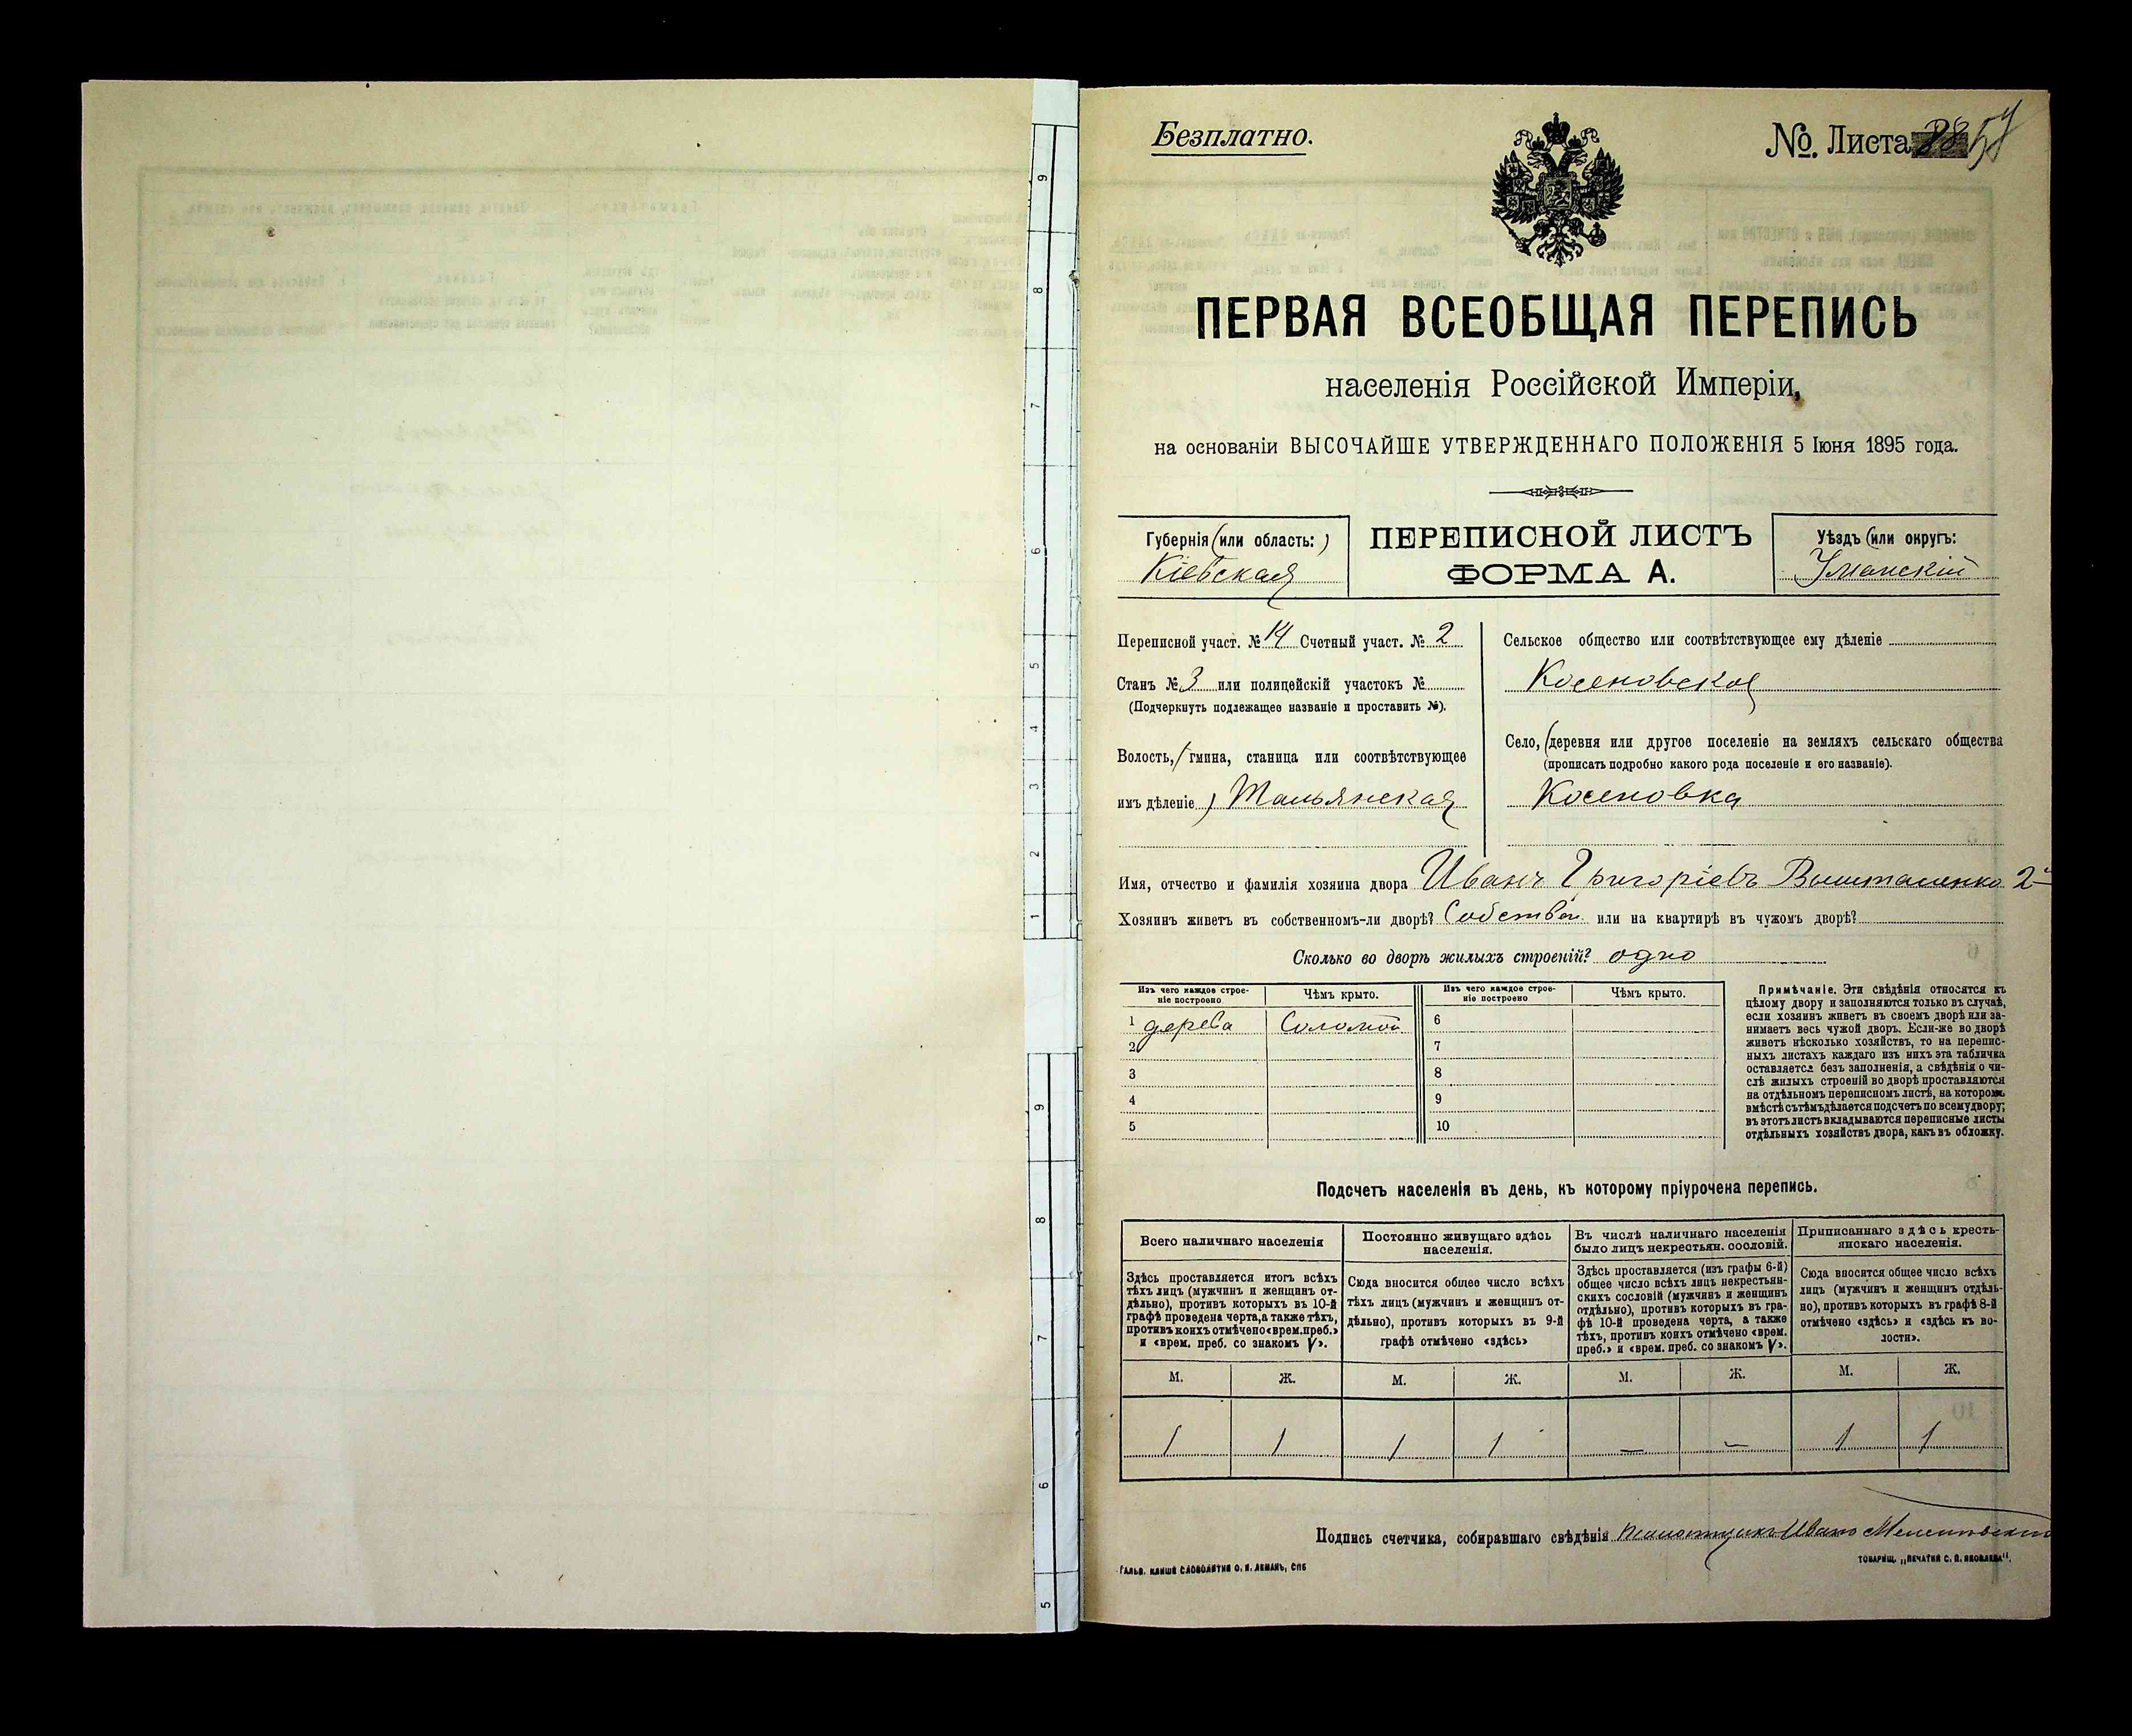 Безплатно.
№. Листа 57
ПЕРВАЯ ВСЕОБЩАЯ ПЕРЕПИСЬ
населенія Россійской Имперіи,
на основаніи ВЫСОЧАЙШЕ УТВЕРЖДЕННАГО ПОЛОЖЕНІЯ 5 Іюня 1895 года.
Губернія (или область:)
Кіевская
ПЕРЕПИСНОЙ ЛИСТЪ
ФОРМА А.
Уѣздъ (или округъ:
Уманскій
Переписной участ. № 14 Счетный участ. № 2
Станъ № 3 или полицейскій участокъ №
(Подчеркнуть подлежащее названіе и проставить №).
Волость, (гмина, станица или соотвѣтствующее
имъ дѣленіе) Тальянская
Сельское общество или соотвѣтствующее ему дѣленіе
Косеновское
Село, (деревня или другое поселеніе на земляхъ сельскаго общества
(прописать подробно какого рода поселеніе и его названіе).
Косеновка
Имя, отчество и фамилія хозяина двора Иванъ Григоріевъ 2й
Хозяинъ живетъ въ собственномъ-ли дворѣ? Собствен. или на квартирѣ въ чужомъ дворѣ?
Сколько во дворѣ жилыхъ строеній? одно
Изъ чего каждое строе-
ніе построено
Чѣмъ крыто.
Изъ чего каждое строе-
ніе построено
Чѣмъ крыто.
1 дерева Соломой 6
2 7
3 8
4 9
5 10
Примѣчаніе. Эти свѣдѣнія относятся къ
цѣлому двору и заполняются только въ случаѣ,
если хозяинъ живетъ въ своемъ дворѣ или за-
нимаетъ весь чужой дворъ. Если-же во дворѣ
живетъ нѣсколько хозяйствъ, то на перепис-
ныхъ листахъ каждаго изъ нихъ эта табличка
оставляется безъ заполненія, а свѣдѣнія о чи-
слѣ жилыхъ строеній во дворѣ проставляются
на отдѣльномъ переписномъ листѣ, на которомъ
вмѣстѣ съ тѣмъ дѣлается подсчетъ по всему двору;
въ этотъ листъ вкладываются переписные листы
отдѣльныхъ хозяйствъ двора, какъ въ обложку.
Подсчетъ населенія въ день, къ которому пріурочена перепись.
Всего наличнаго населенія
Постоянно живущаго здѣсь
населенія.
Въ числѣ наличнаго населенія
было лицъ некрестьян. сословій.
Приписаннаго здѣсь кресть-
янскаго населенія.
Здѣсь проставляется итогъ всѣхъ
тѣхъ лицъ (мужчинъ и женщинъ от-
дѣльно), противъ которыхъ въ 10-й
графѣ проведена черта, а также тѣхъ,
противъ коихъ отмѣчено «врем. преб.»
и «врем. преб. со знакомъ V».
Сюда вносится общее число всѣхъ
тѣхъ лицъ (мужчинъ и женщинъ от-
дѣльно), противъ которыхъ въ 9-й
графѣ отмѣчено «здѣсь»
Здѣсь проставляется (изъ графы 6-й)
общее число всѣхъ лицъ некрестьян-
скихъ сословій (мужчинъ и женщинъ
отдѣльно), противъ которыхъ въ гра-
фѣ 10-й проведена черта, а также
тѣхъ, противъ коихъ отмѣчено «врем.
преб.» и «врем. преб. со знакомъ V».
Сюда вносится общее число всѣхъ
лицъ (мужчинъ и женщинъ отдѣль-
но), противъ которыхъ въ графѣ 8-й
отмѣчено «здѣсь» и «здѣсь къ во-
лости».
М. Ж. М. Ж. М. Ж. М. Ж.
1 1 1 1 — — 1 1
Подпись счетчика, собиравшаго свѣдѣнія Иванъ
ГАЛЬВ. КЛИШЕ СЛОВОЛИТНИ О. И. ЛЕМАНЪ, СПБ
ТОВАРИЩ. „ПЕЧАТНЯ С. П. ЯКОВЛЕВА".
9
8
7
6
5
4
3
2
1
9
8
7
6
5